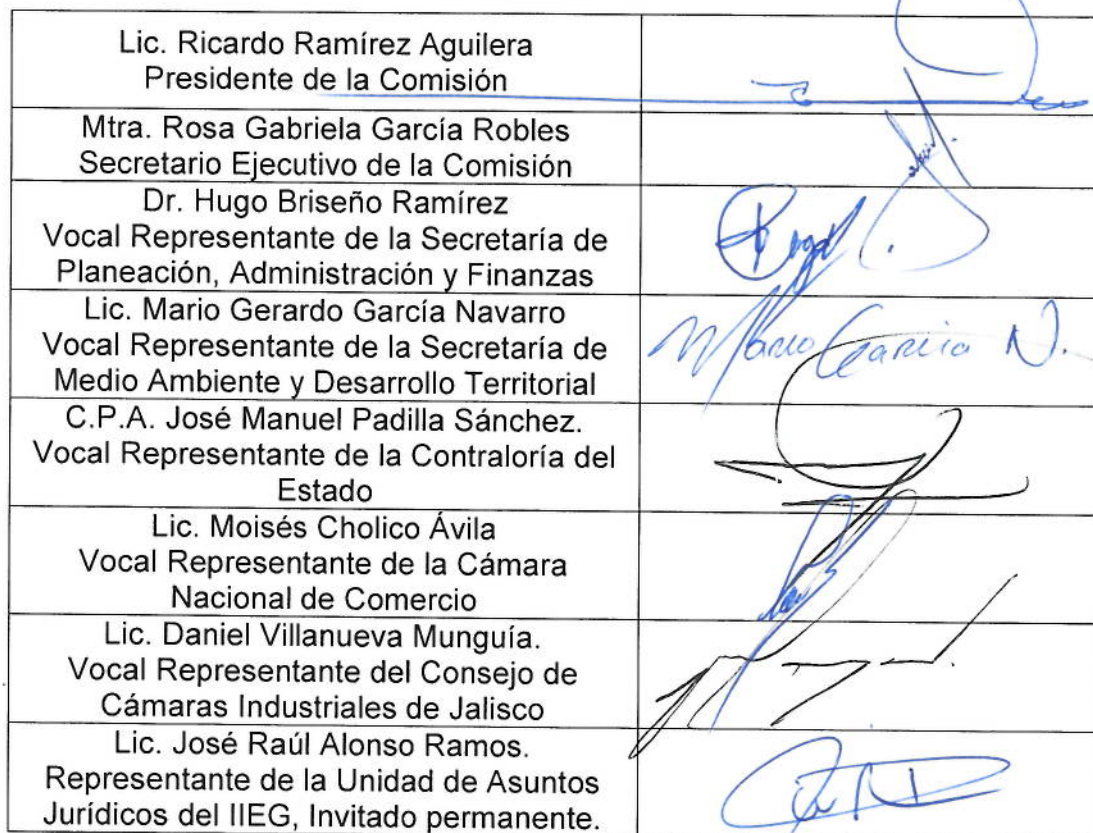 Lic. Ricardo Ramírez Aguilera
Presidente de la Comisión
Mtra. Rosa Gabriela García Robles
Secretario Ejecutivo de la Comisión
Dr. Hugo Briseño Ramírez
Vocal Representante de la Secretaría de
Planeación, Administración y Finanzas
Lic. Mario Gerardo García Navarro
Vocal Representante de la Secretaría de
Medio Ambiente y Desarrollo Territorial
Mario García N.
C.P.A. José Manuel Padilla Sánchez.
Vocal Representante de la Contraloría del
Estado
Lic. Moisés Cholico Ávila
Vocal Representante de la Cámara
Nacional de Comercio
Lic. Daniel Villanueva Munguía.
Vocal Representante del Consejo de
Cámaras Industriales de Jalisco
Lic. José Raúl Alonso Ramos.
Representante de la Unidad de Asuntos
Jurídicos del IIEG, Invitado permanente.